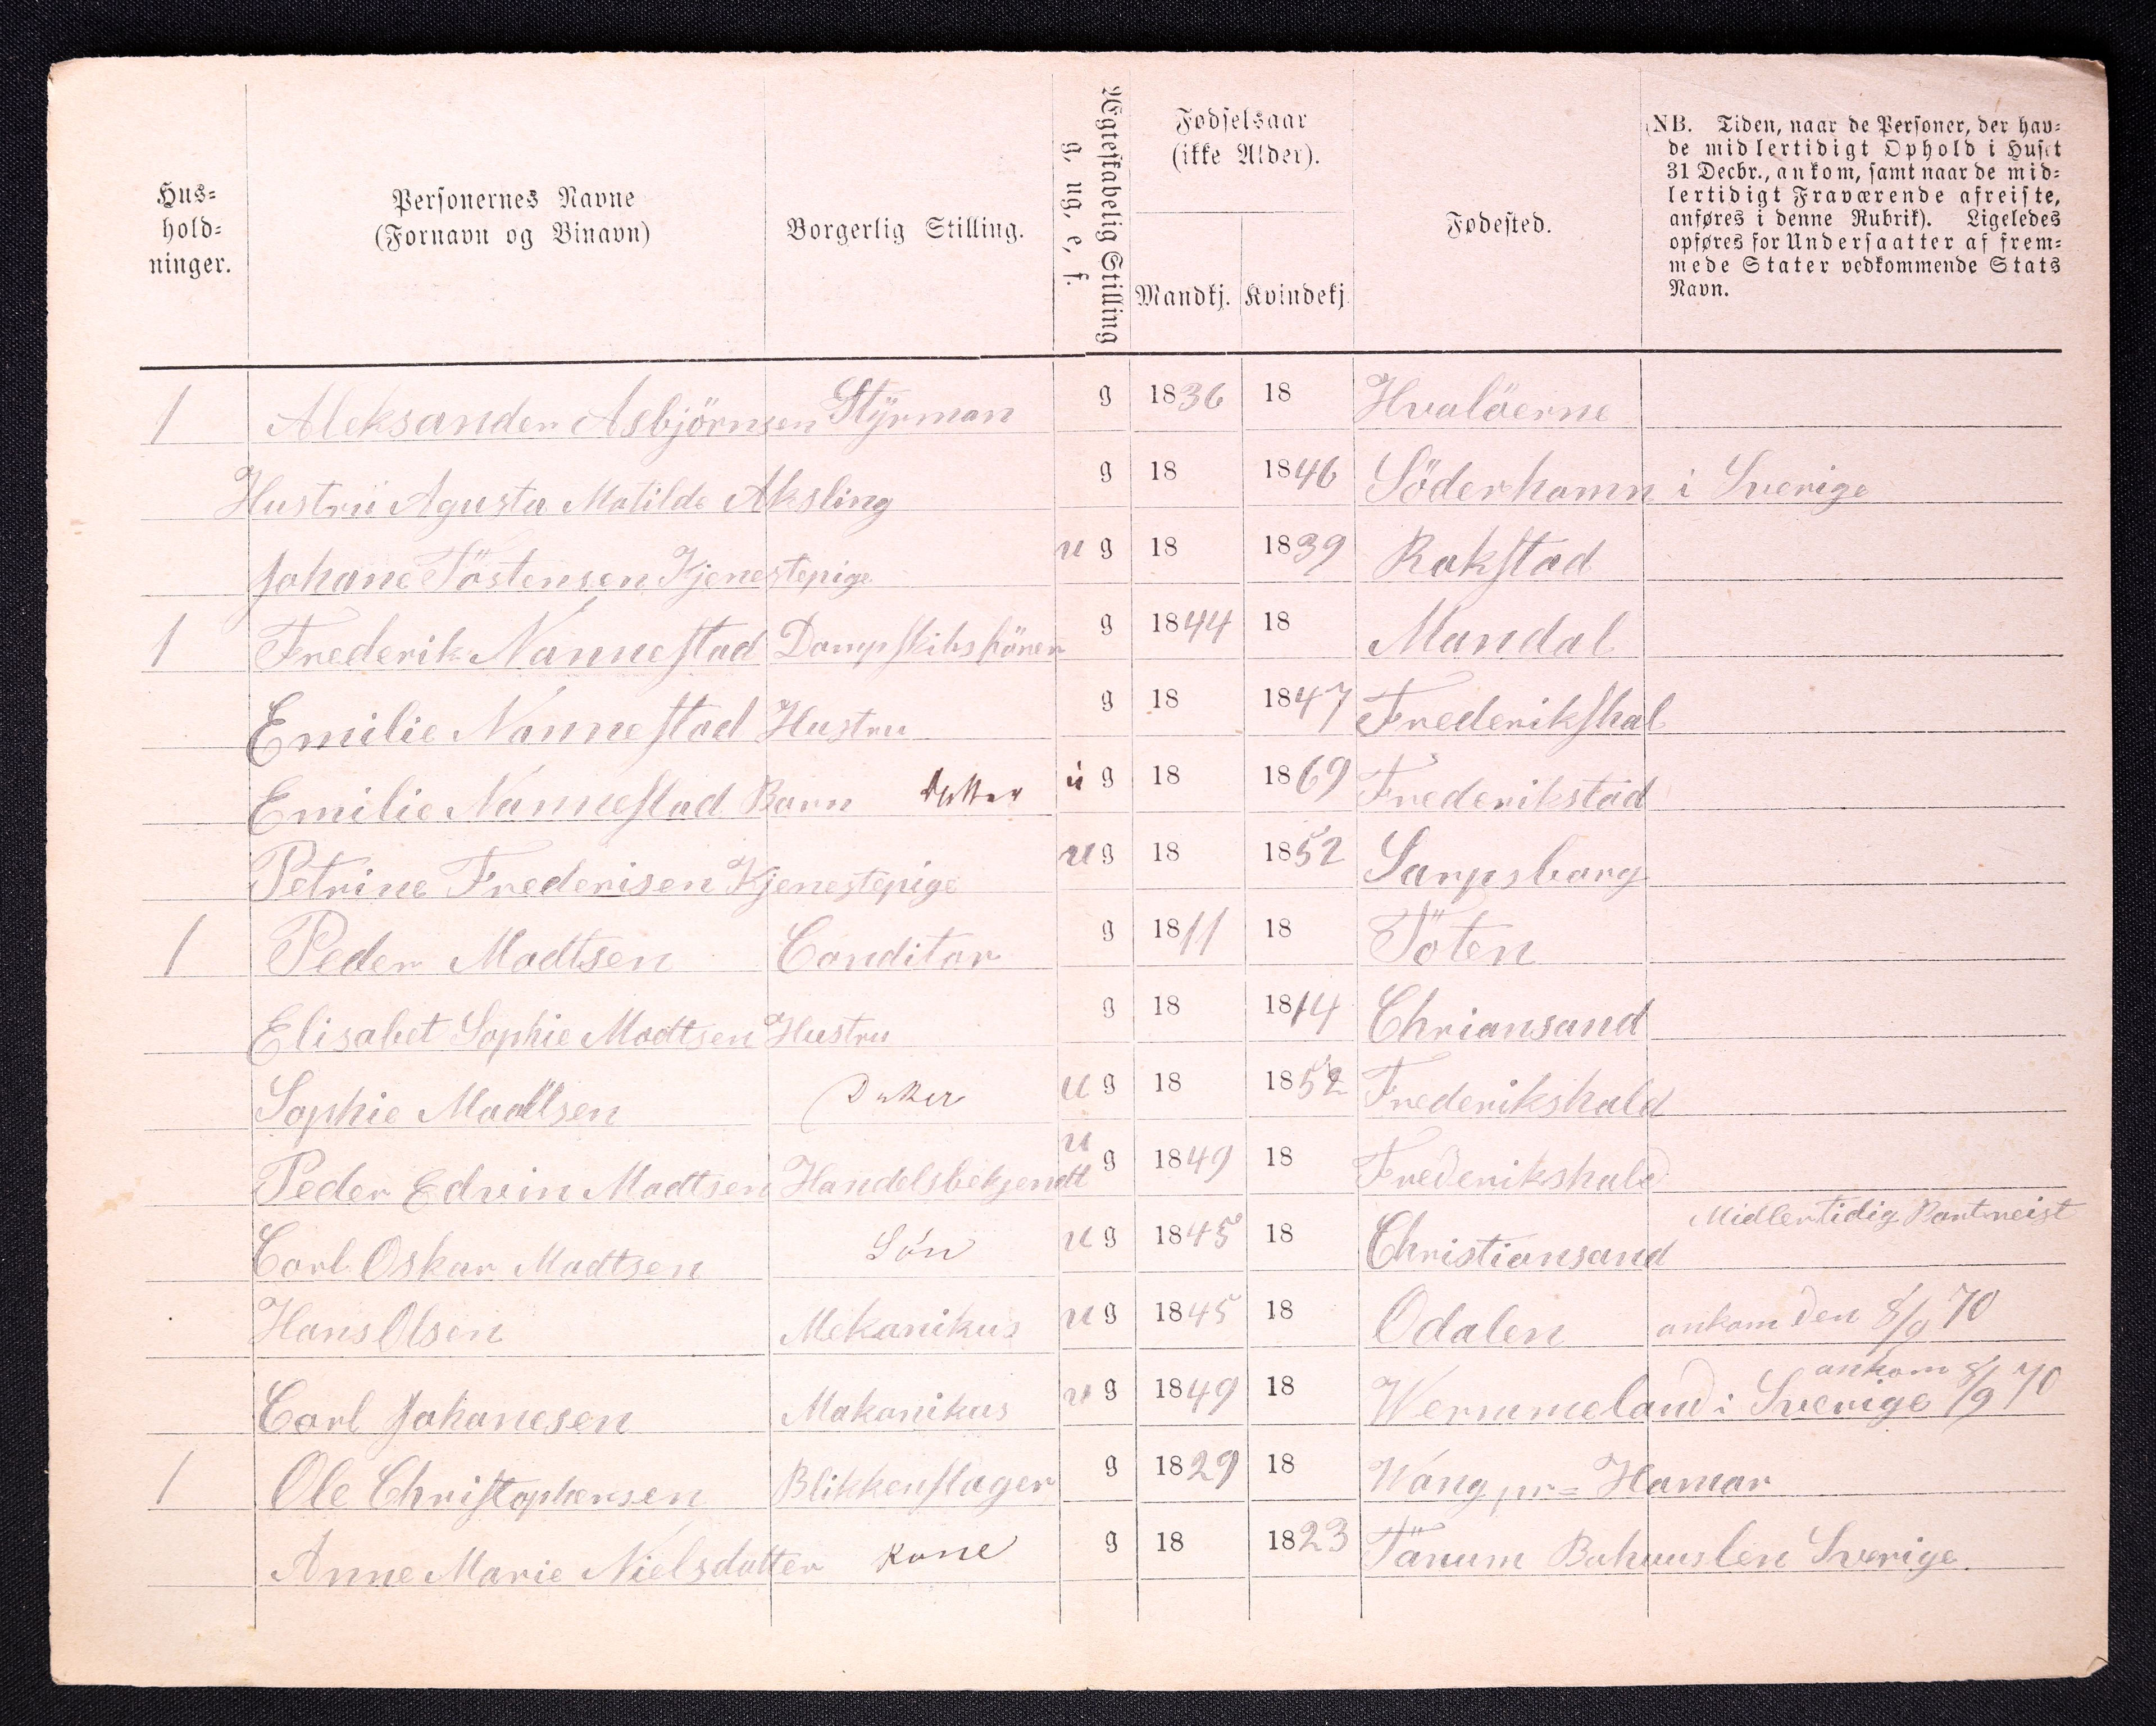 Hus=
hold=
ninger.
Personernes Navne
(Fornavn og Binavn)
Borgerlig Stilling.
Ægteskabelig Stilling
g, ug, e, f.
Fødselsaar
(ikke Alder).
Mandkj. Kvindekj.
Fødested.
(NB. Tiden, naar de Personer, der hav=
de midlertidigt Ophold i Huset
31 Decbr., ankom, samt naar de mid=
lertidigt Fraværende afreiste,
anføres i denne Rubrik). Ligeledes
opføres for Undersaatter af frem=
mede Stater vedkommende Stats
Navn.
1 Aleksander Asbjörnsen Styrman g 1836 18 Hvalöerne
Hustru Agusta Matilde Aksling g 18 1846 Söderhamn i Sverige
Johane Töstensen Tjenestepige u g 18 1839 Rakstad
1 Frederik Nannestad Dampskibsförer g 1844 18 Mandal
Emilie Nannestad Hustru g 18 1847 Frederikshal
Emilie Nannestad Barn datter u g 18 1869 Frederikstad
Petrine Frederisen Tjenestepige u g 18 1852 Sarpsborg
1 Peder Madtsen Conditor g 1811 18 Töten
Elisabet Sophie Madtsen Hustru g 18 1814 Chriansand
Sophie Madtsen Datter u g 18 1852 Frederikshald
Peder Edvin Madtsen Handelsbetjendt u g 1849 18 Frederikshald
Carl Oskar Madtsen Sön u g 1845 18 Christiansand Midlertidig Bortreist
Hans Olsen Mekanikus u g 1845 18 Odalen ankom den 8/9 70
Carl Johanesen Makanikus u g 1849 18 Wermmeland i Sverige ankom 8/9 70
1 Ole Christophersen Blikkenslager g 1829 18 Wang pr= Hamar
Anne Marie Nielsdatter Kone g 18 1823 Tänum Bahuuslen Sverige.